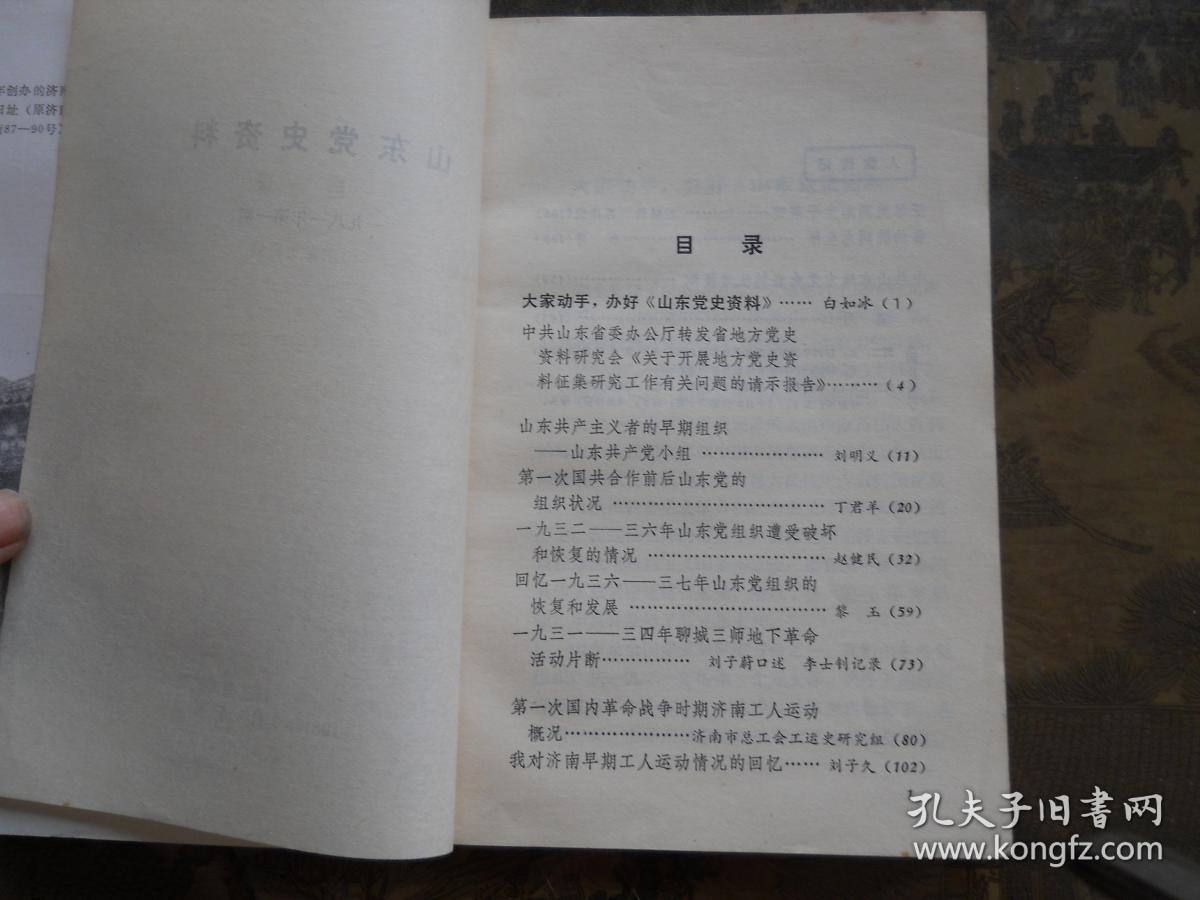 年创办的济
旧址（原济
街87—90号）
山东党史资料
一九八一年第一期
目 录
大家动手，办好《山东党史资料》…… 白如冰（1）
中共山东省委办公厅转发省地方党史
资料研究会《关于开展地方党史资
料征集研究工作有关问题的请示报告》………（4）
山东共产主义者的早期组织
——山东共产党小组 ………………… 刘明义（11）
第一次国共合作前后山东党的
组织状况 ……………………………… 丁君羊（20）
一九三二——三六年山东党组织遭受破坏
和恢复的情况 ………………………… 赵健民（32）
回忆一九三六——三七年山东党组织的
恢复和发展 …………………………… 黎 玉（59）
一九三一——三四年聊城三师地下革命
活动片断…………… 刘子蔚口述 李士钊记录（73）
第一次国内革命战争时期济南工人运动
概况…………………济南市总工会工运史研究组（80）
我对济南早期工人运动情况的回忆…… 刘子久（102）
1
孔夫子旧书网
www.kongfz.com